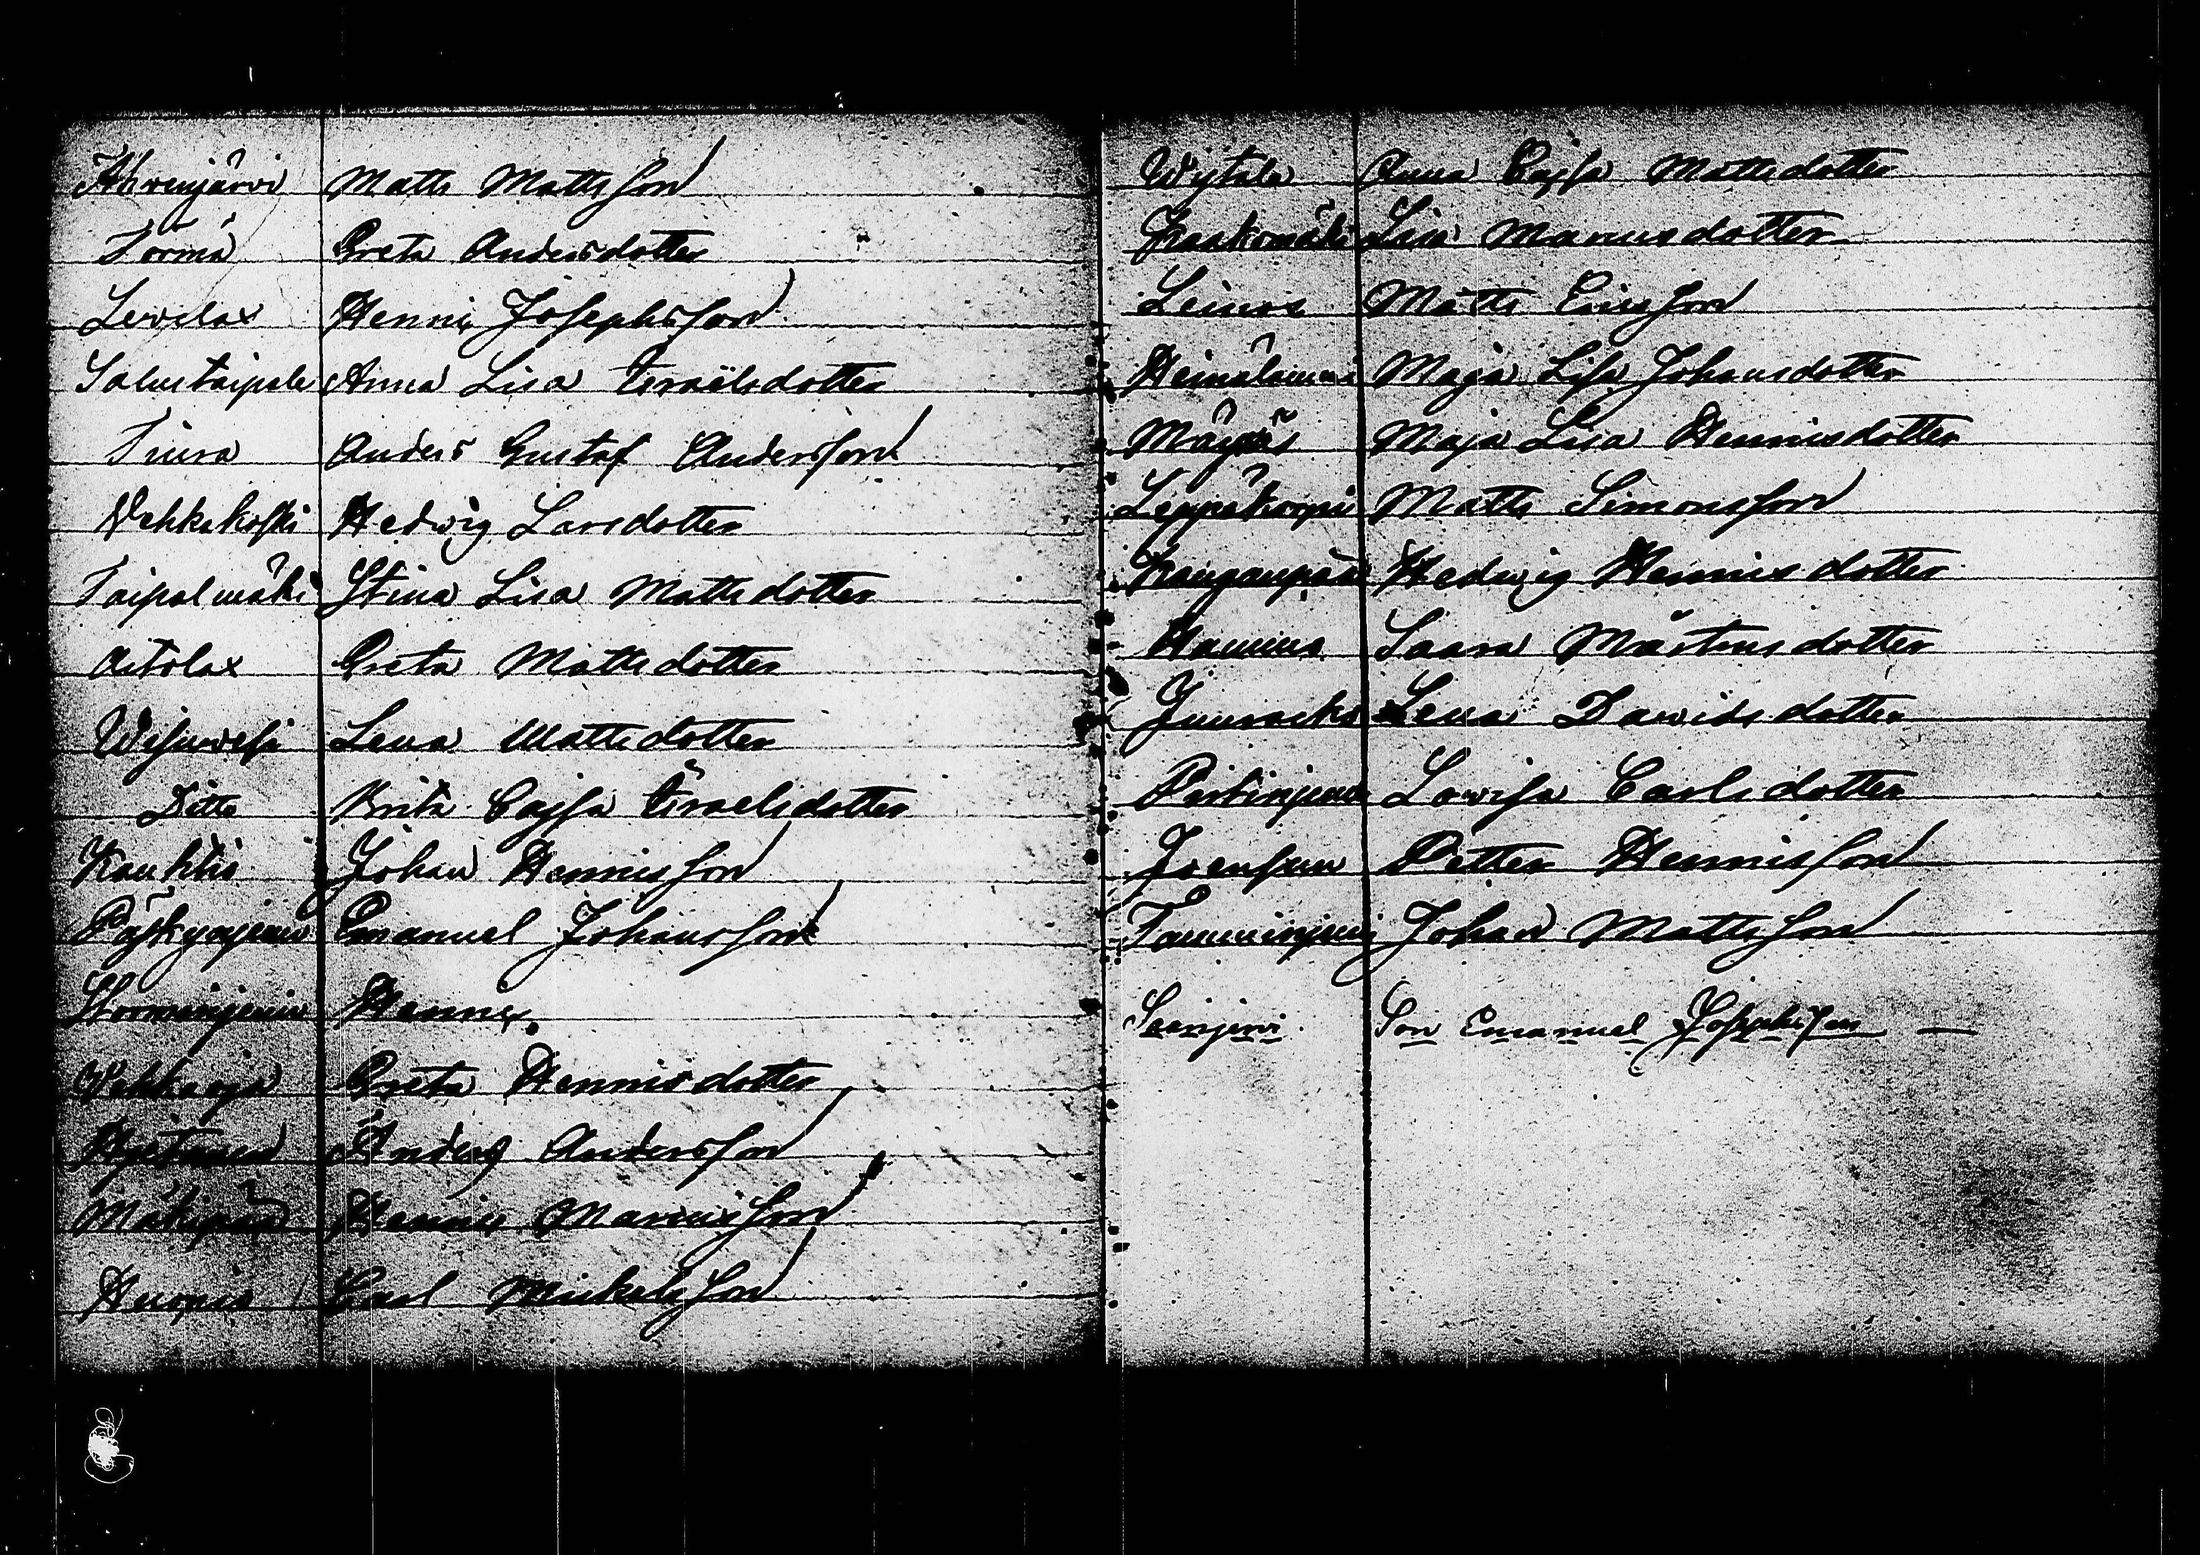 Ahvenjärvi Matts Mattsson
Törmä Greta Andersdotter
Levelax Henric Josephsson
Salustaipale Anna Lisa Israëlsdotter
Tiura Anders Gustaf Andersson
Vehkakoski Hedwig Larsdotter
Taipalmäki Stina Lisa Mattsdotter
Aitolax Greta Mattsdotter
Wesuvesi Lena Mattsdotter
Ditto Brita Cajsa Israelsdotter
Kauhtio Johan Henricsson
Emanuel Johansson
Henric
Vehkaoja Greta Henricsdotter
Hietanen Anders Andersson
Mäkipää Henric Marcusson
Carl Mickelsson
Wytala Anna Cajsa Mattsdotter
Kaakomäki Lisa Marcusdotter
Leinos Matts Ericsson
Heinälamni Maja Lisa Johansdotter
Maja Lisa Henricsdotter
Leppäkorpi Matts Simonsson
Kangaupää Hedwig Henricsdotter
Hannus Saara Mårtensdotter
Lena Davidsdotter
Lovisa Carlsdotter
Joensuu Petter Henricsson
Tamminjemi Johan Mattsson
Saarijervi Son Emanuel Josephsson —